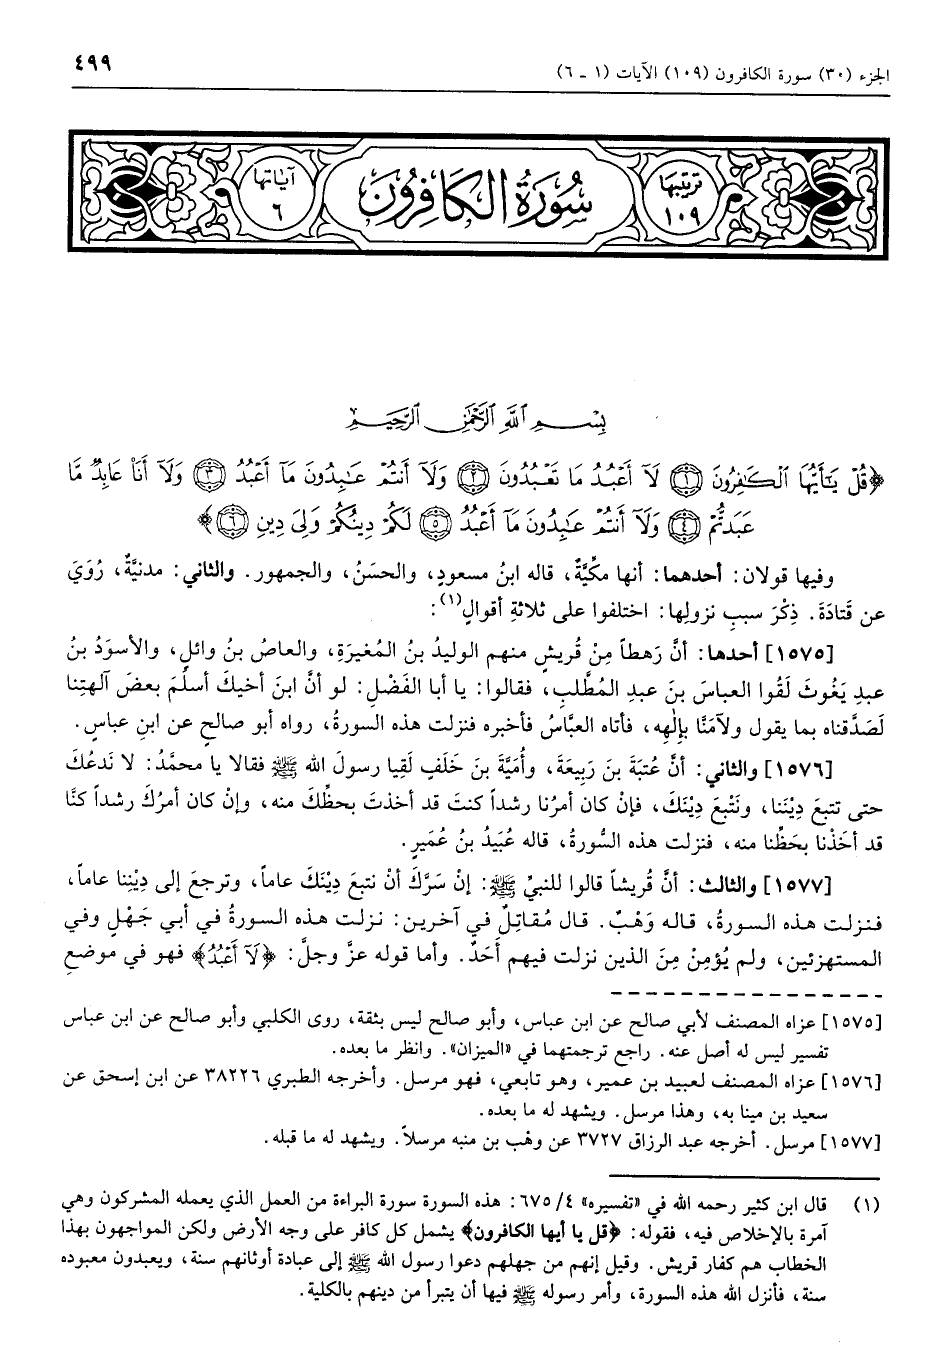 الجزء (٣٠) سورة الكافرون (١٠٩) الآيات (١ - ٦)
٤٩٩
ترتيبها ١٠٩
سُورَةُ الكَافِرُونَ
آياتها ٦
بِسْمِ اللَّهِ الرَّحْمَٰنِ الرَّحِيمِ
﴿قُلْ يَٰٓأَيُّهَا ٱلْكَٰفِرُونَ ١ لَآ أَعْبُدُ مَا تَعْبُدُونَ ٢ وَلَآ أَنتُمْ عَٰبِدُونَ مَآ أَعْبُدُ ٣ وَلَآ أَنَا۠ عَابِدٌ مَّا
عَبَدتُّمْ ٤ وَلَآ أَنتُمْ عَٰبِدُونَ مَآ أَعْبُدُ ٥ لَكُمْ دِينُكُمْ وَلِىَ دِينِ ٦﴾
وفيها قولان: أحدهما: أنها مكِّيَّةٌ، قاله ابنُ مسعودٍ، والحسَنُ، والجمهور. والثاني: مدنيَّةٌ، رُوَيَ
عن قَتادَةَ. ذِكْرَ سببِ نزولِها: اختلفوا على ثلاثةِ أقوالٍ(١):
[١٥٧٥] أحدها: أنَّ رَهطاً مِنْ قُريشٍ منهم الوليدُ بنُ المُغيرَةِ، والعاصُ بنُ وائلٍ، والأسوَدُ بنُ
عبدِ يَغُوثَ لَقُوا العباسَ بنَ عبدِ المُطَّلبِ، فقالوا: يا أبا الفَضْلِ: لو أنَّ ابنَ أخيكَ أسلَمَ بعضَ آلهتِنا
لَصَدَّقناه بما يقول ولآمَنَّا بإلٰهِه، فأتاه العبَّاسُ فأخبره فنزلت هذه السورةُ، رواه أبو صالحٍ عن ابنِ عباسٍ.
[١٥٧٦] والثاني: أنَّ عُتبَةَ بنَ رَبِيعَةَ، وأُمَيَّةَ بنَ خَلَفٍ لَقِيا رسولَ الله ﷺ فقالا يا محمَّدُ: لا نَدعُكَ
حتى تتبعَ دِيْنَنا، ونَتْبعَ دِيْنَكَ، فإنْ كان أمرُنا رشداً كنتَ قد أخذتَ بحظِّكَ منه، وإنْ كان أمرُكَ رشداً كنَّا
قد أخَذْنا بحَظِّنا منه، فنزلت هذه السُّورةُ، قاله عُبَيدُ بنُ عُمَيرٍ.
[١٥٧٧] والثالث: أنَّ قُريشاً قالوا للنبيِّ ﷺ: إنْ سَرَّكَ أنْ نتبعَ دِيْنَكَ عاماً، وترجعَ إلى دِيْنِنا عاماً،
فنزلت هذه السورةُ، قاله وَهْبٌ. قال مُقاتِلٌ في آخرين: نزلت هذه السورةُ في أبي جَهْلٍ وفي
المستهزئين، ولم يُؤمِنْ مِنَ الذين نزلت فيهم أَحَدٌ. وأما قوله عزَّ وجلَّ: ﴿لَآ أَعْبُدُ﴾ فهو في موضعِ
[١٥٧٥] عزاه المصنف لأبي صالح عن ابن عباس، وأبو صالح ليس بثقة، روى الكلبي وأبو صالح عن ابن عباس
تفسير ليس له أصل عنه. راجع ترجمتهما في «الميزان». وانظر ما بعده.
[١٥٧٦] عزاه المصنف لعبيد بن عمير، وهو تابعي، فهو مرسل. وأخرجه الطبري ٣٨٢٢٦ عن ابن إسحق عن
سعيد بن مينا به، وهذا مرسل. ويشهد له ما بعده.
[١٥٧٧] مرسل. أخرجه عبد الرزاق ٣٧٢٧ عن وهْب بن منبه مرسلاً. ويشهد له ما قبله.
(١) قال ابن كثير رحمه الله في «تفسيره» ٤/ ٦٧٥: هذه السورة سورة البراءة من العمل الذي يعمله المشركون وهي
آمرة بالإخلاص فيه، فقوله: ﴿قل يا أيها الكافرون﴾ يشمل كل كافر على وجه الأرض ولكن المواجهون بهذا
الخطاب هم كفار قريش. وقيل إنهم من جهلهم دعوا رسول الله ﷺ إلى عبادة أوثانهم سنة، ويعبدون معبوده
سنة، فأنزل الله هذه السورة، وأمر رسوله ﷺ فيها أن يتبرأ من دينهم بالكلية.